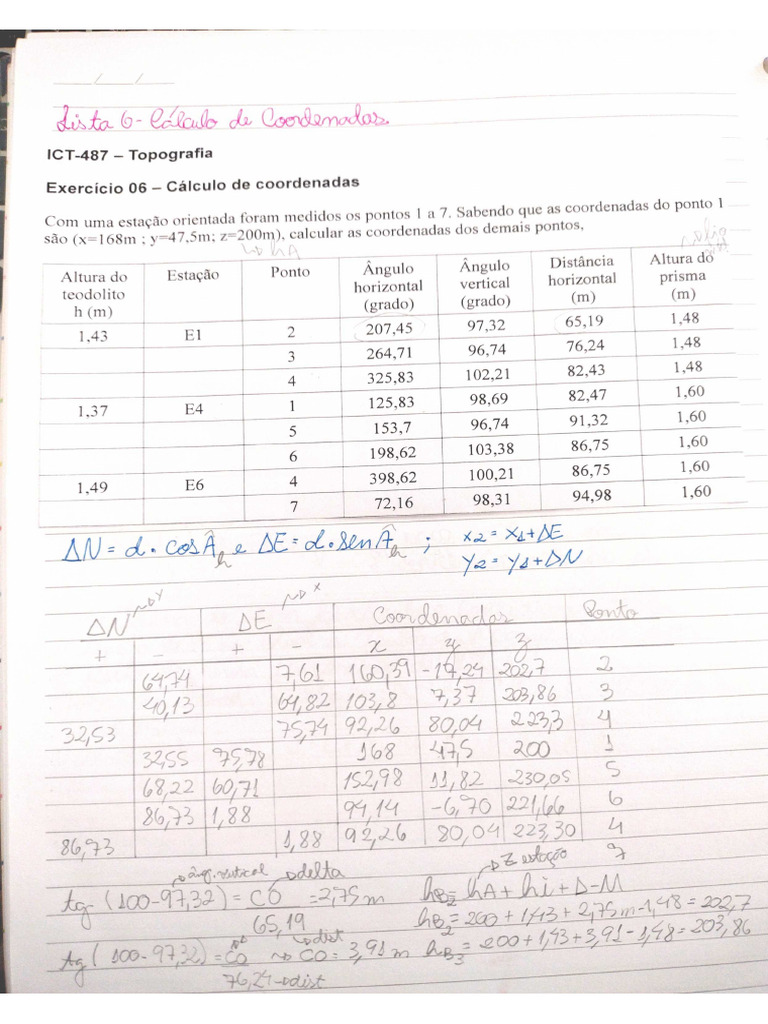 Lista 6- Cálculo de Coordenadas.
ICT-487 – Topografia
Exercício 06 – Cálculo de coordenadas
Com uma estação orientada foram medidos os pontos 1 a 7. Sabendo que as coordenadas do ponto 1
são (x=168m ; y=47,5m; z=200m), calcular as coordenadas dos demais pontos,
hA
Altura do teodolito h (m) Estação Ponto Ângulo horizontal (grado) Ângulo vertical (grado) Distância horizontal (m) Altura do prisma (m)
1,43 E1 2 207,45 97,32 65,19 1,48
3 264,71 96,74 76,24 1,48
4 325,83 102,21 82,43 1,48
1,37 E4 1 125,83 98,69 82,47 1,60
5 153,7 96,74 91,32 1,60
6 198,62 103,38 86,75 1,60
1,49 E6 4 398,62 100,21 86,75 1,60
7 72,16 98,31 94,98 1,60
ΔN = d . cos Âh e ΔE = d . sen Âh ; x2 = x1+ΔE
y2 = y1+ΔN
ΔN → y ΔE → x Coordenadas Ponto
+ - + - x y z
64,74 7,61 160,39 -17,24 202,7 2
40,13 64,82 103,8 7,37 203,86 3
32,53 75,74 92,26 80,04 223,3 4
32,55 75,78 168 47,5 200 1
68,22 60,71 152,98 11,82 230,05 5
86,73 1,88 94,14 -6,70 221,66 6
86,73 1,88 92,26 80,04 223,30 4
7
→ âng. vertical → delta → Z estação
tg (100-97,32) = CO = 2,75 m hB2 = hA + hi + Δ - M
65,19 hB2 = 200 + 1,43 + 2,75m - 1,48 = 202,7
→ dist
tg (100-97,32) = CO → CO = 3,91 m hB3 = 200 + 1,43 + 3,91 - 1,48 = 203,86
76,24 → dist